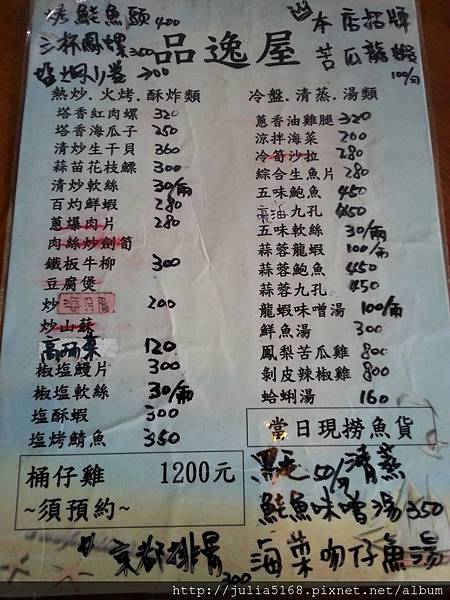 烤鮭魚頭 400
三杯鳳螺 300
小卷 300
品逸屋
本店招牌
苦瓜龍蝦
100/兩
熱炒.火烤.酥炸類
塔香紅肉螺 320
塔香海瓜子 250
清炒生干貝 360
蒜苗花枝鰾 300
清炒軟絲 30/兩
百灼鮮蝦 280
蔥爆肉片 280
肉絲炒劍筍
鐵板牛柳 300
豆腐煲
炒 200
炒山蘇
高麗菜 120
椒塩鰻片 300
椒塩軟絲 30/兩
塩酥蝦 300
塩烤鯖魚 350
桶仔雞 1200元
~須預約~
京都排骨 300
冷盤.清蒸.湯類
蔥香油雞腿 320
涼拌海菜 200
冷筍沙拉 280
綜合生魚片 280
五味鮑魚 450
九孔 450
五味軟絲 30/兩
蒜蓉龍蝦 100/兩
蒜蓉鮑魚 450
蒜蓉九孔 450
龍蝦味噌湯 100/兩
鮮魚湯 300
鳳梨苦瓜雞 800
剝皮辣椒雞 800
蛤蜊湯 160
當日現撈魚貨
黑毛 50/兩 清蒸
鮭魚味噌湯 350
海菜吻仔魚湯
http://julia5168.pixnet.net/album